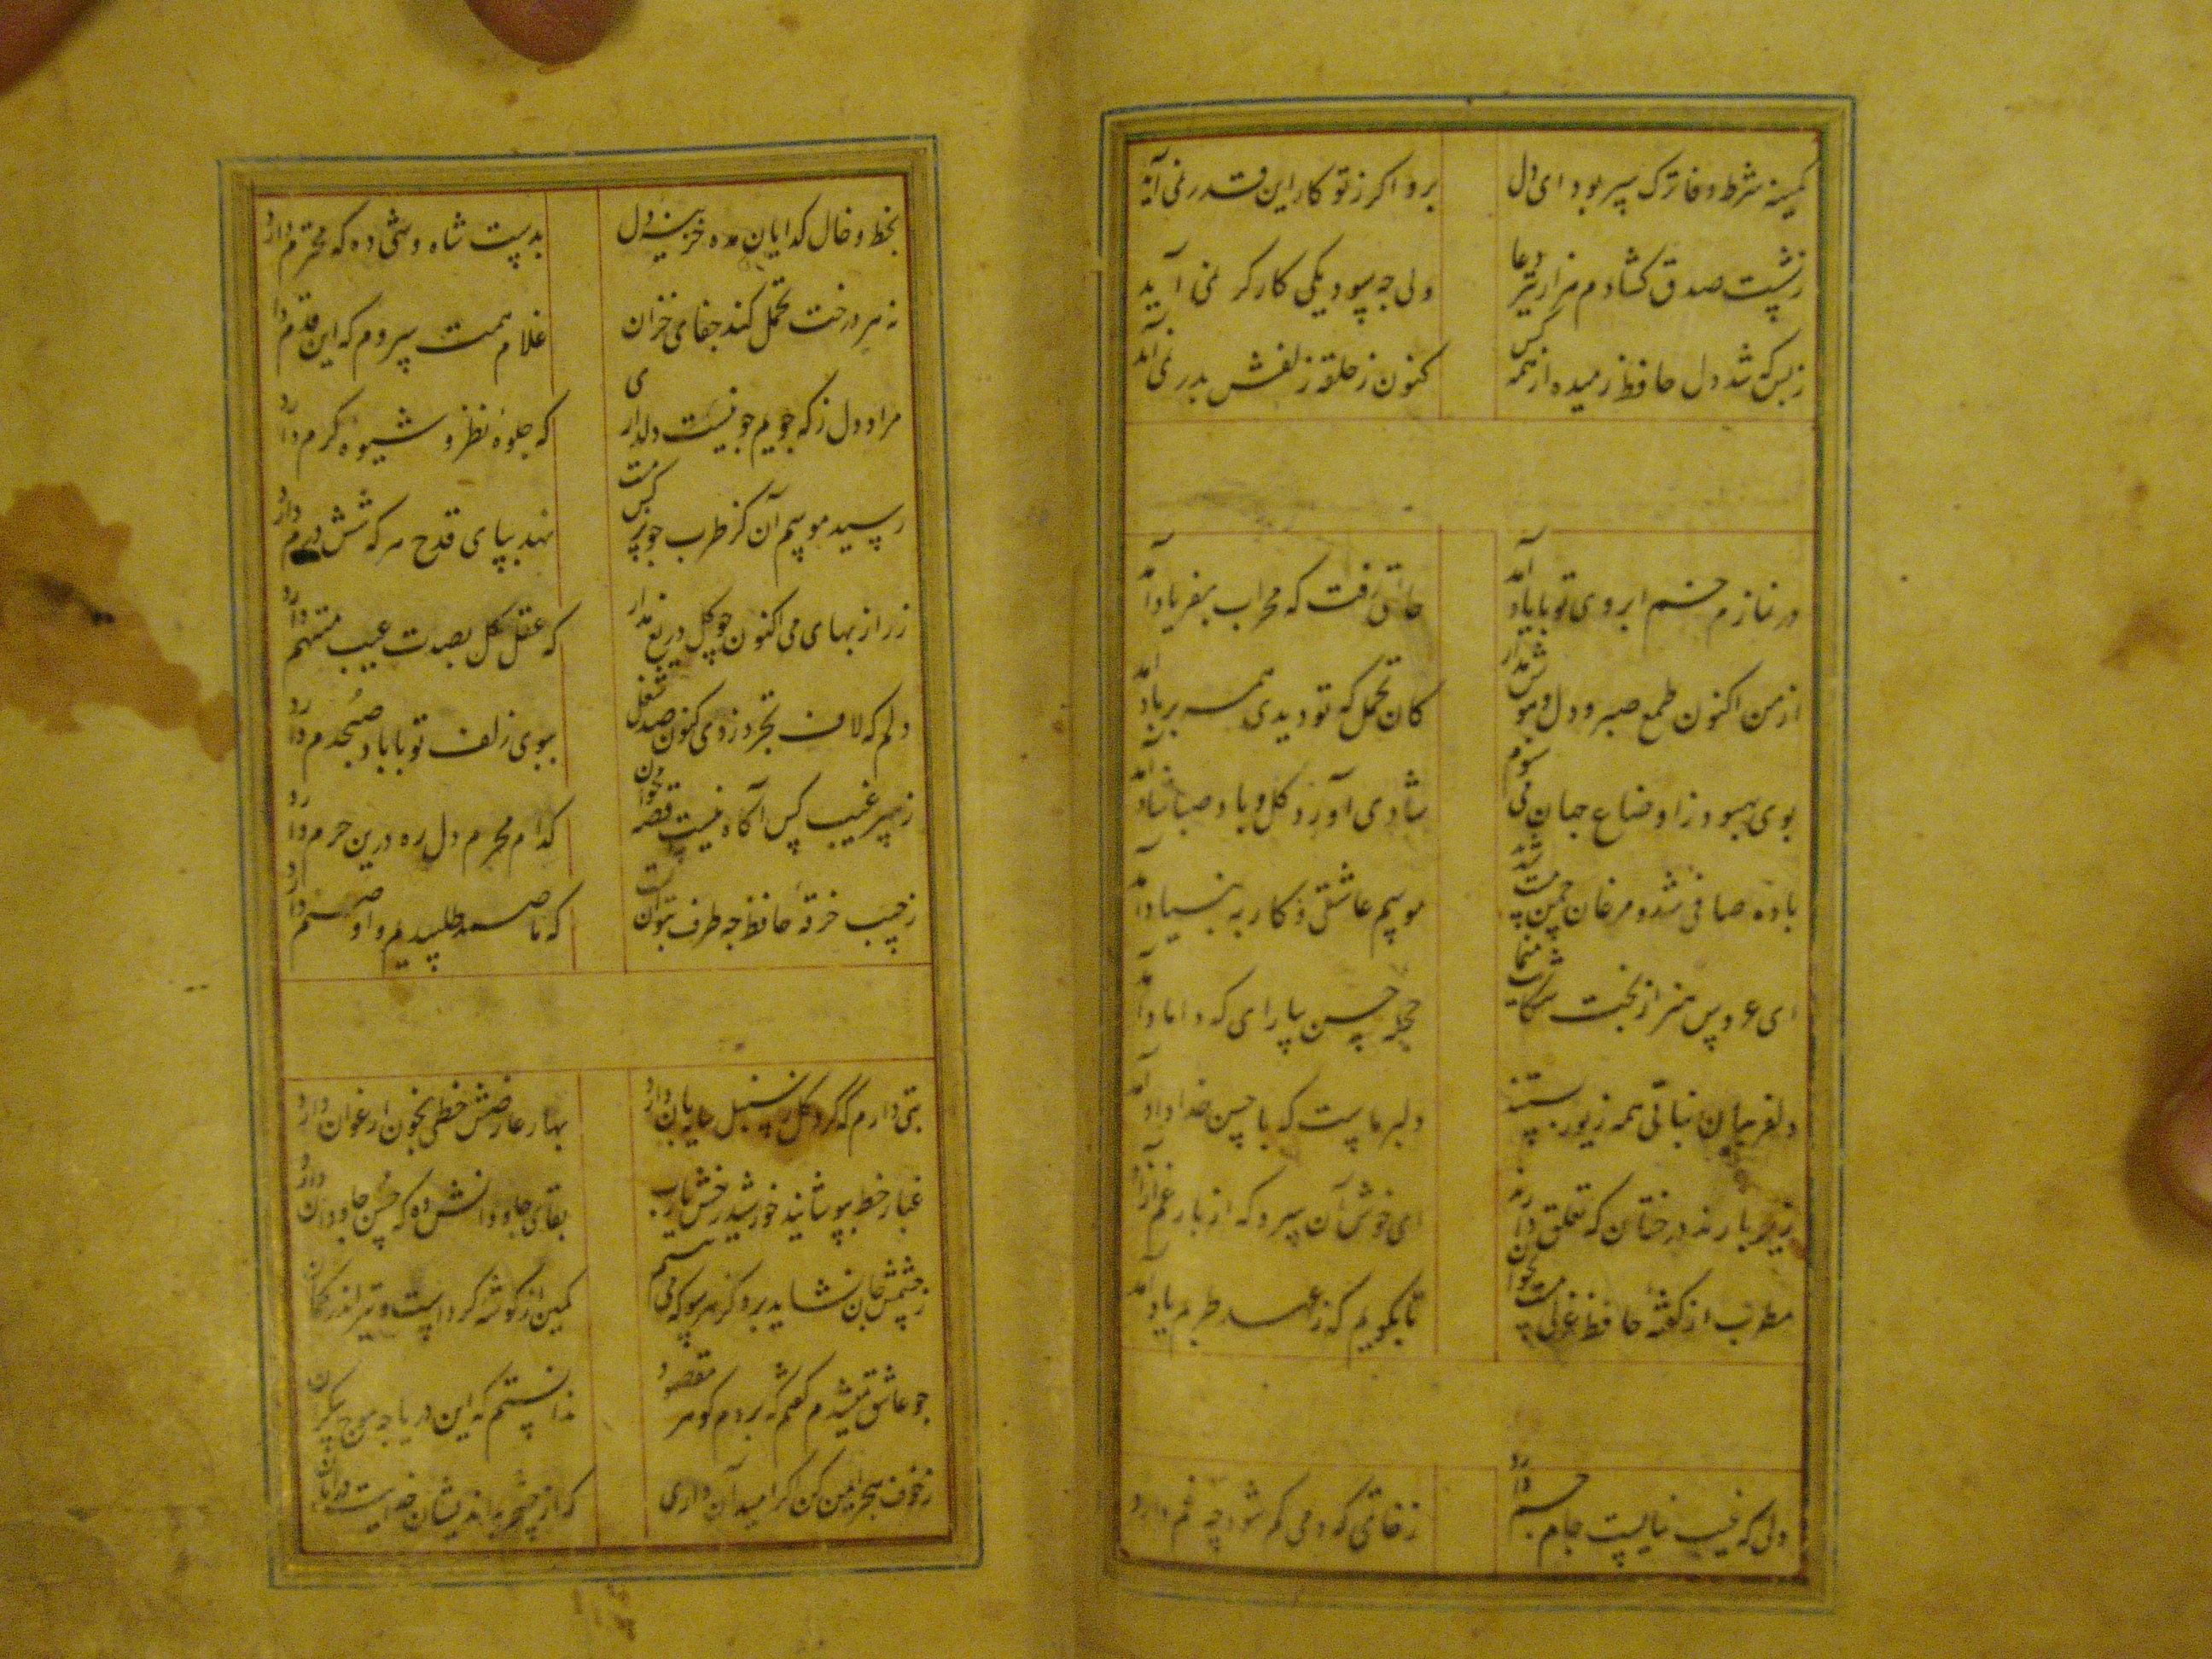 کمینه شرط وفا ترک سر بود ای دل برو اکر ز تو کار این قدر نمی آید
ز شست صدق کشادم هزار تیر دعا ولی چه سود یکی کارکر نمی آید
ز بس که شد دل حافظ رمیده از همه کس کنون ز حلقه زلفش بدر نمی آید
در نمازم خم ابروی تو با یاد آمد حالتی رفت که محراب بفریاد آمد
از من اکنون طمع صبر و دل و هوش مدار کان تحمل که تو دیدی همه بر باد آمد
بوی بهبود ز اوضاع جهان می شنوم شادی آورد کل و باد صبا شاد آمد
باده صافی شد و مرغان چمن مست شدند موسم عاشقی و کار به بنیاد آمد
ای عروس هنر از بخت شکایت منما حجله حسن بیارای که داماد آمد
دلفریبان نباتی همه زیور بستند دلبر ماست که با حسن خداداد آمد
زیر بارند درختان که تعلق دارند ای خوش آن سرو که از بار غم آزاد آمد
مطرب از کفته حافظ غزلی مست بخوان تا بکویم که ز عهد طربم یاد آمد
دلی که غیب نمایست جام جم دارد ز خاتمی که دمی کم شود چه غم دارد
بخط و خال کدایان مده خزینه دل بدست شاه وشی ده که محترم دارد
نه هر درخت تحمل کند جفای خزان غلام همت سروم که این قدم دارد
مراد دل ز که جویم جو نیست دلداری که جلوه نظر و شیوه کرم دارد
رسید موسم آن کز طرب جو نرکس مست نهد بپای قدح هر که شش درم دارد
زر از بهای می اکنون جو کل دریغ مدار که عقل کل بصدت عیب متهم دارد
دلم که لاف تجرد زدی کنون صد شغل ببوی زلف تو با باد صبحدم دارد
ز سر غیب کس آکاه نیست قصه مخوان کدام محرم دل ره درین حرم دارد
ز جیب خرقه حافظ چه طرف بتوان بست که ما صمد طلبیدیم و او صنم دارد
بتی دارم که کرد کل ز سنبل سایه بان دارد بهار عارضش خطی بخون ارغوان دارد
غبار خط بپوشانید خورشید رخش یارب بقای جاودانش ده که حسن جاودان دارد
ز چشمش جان نشاید برد کز هر سو که می بینم کمین از کوشه کرداست و تیر اندر کمان
جو عاشق میشدم کفتم که بردم کوهر مقصود ندانستم که این دریا چه موج بیکران
ز خوف هجرم ایمن کن کر امید آن داری که از چشم بداندیشان خدایت در امان